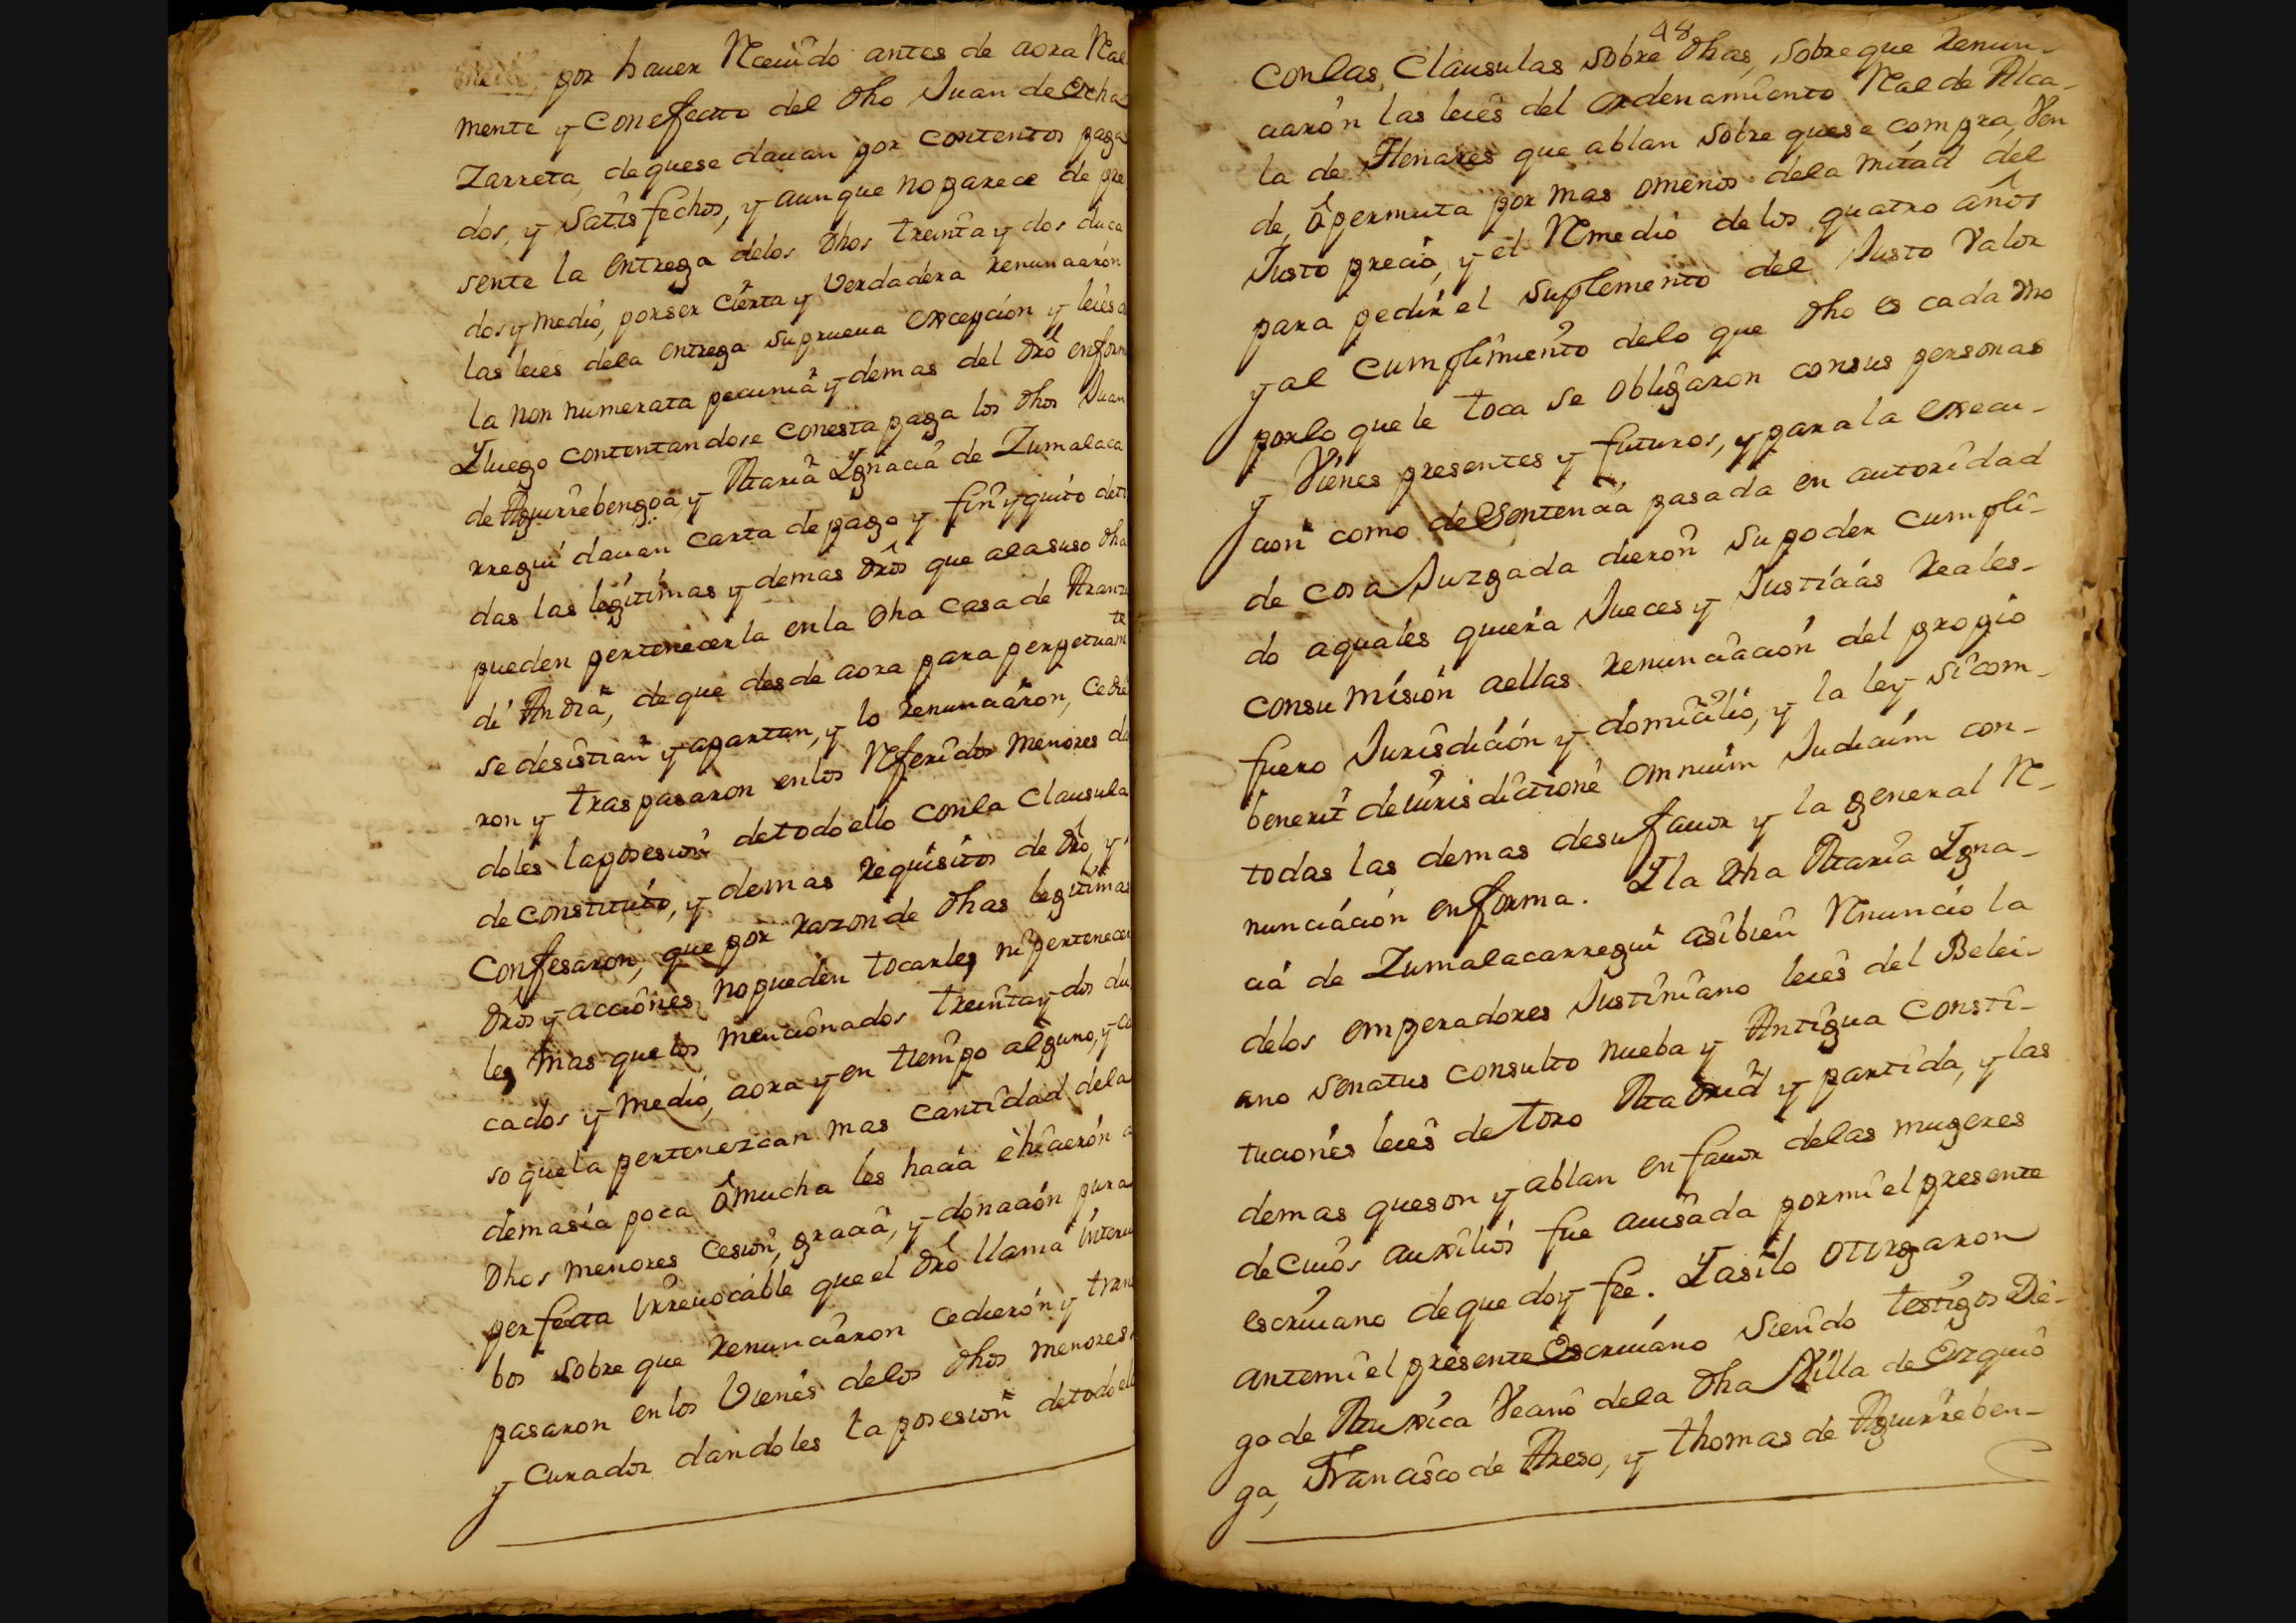 por hauer Rceuido antes de aora Ral
mente y Con efecto del dho Juan de Echa
Zarreta, de que se dauan por Contentos paga
dos, y Satisfechos, y aunque no parece de pre
sente la entrega delos dhos treinta y dos duca
dos y medio, por ser Cierta y Verdadera Renunciaron
las leies dela entrega su prueua excepcion y leies d
la non numerata pecunia y demas del dro enform
Y luego Contentandose Con esta paga los dhos Juan
de Aguirrebengoa, y Maria Ygnacia de Zumalaca
rregui dauan Carta de pago y fin y quito deto
das las legitimas y demas dros que ala suso dha
pueden pertenecerla en la dha Casa de Aranz
di Andia, de que desde aora para perpetuamte
se desistian y apartan, y lo Renunciaron, Cedie
ron y traspasaron en los Rferidos menores da
doles la posesion de todo ello Con la Clausula
de Constituto, y demas Requisitos de dro, y
Confesaron, que por Razon de dhas legitimas
dros y acciones no pueden tocarles ni pertenecer
les mas que los mencionados treinta y dos du
cados y medio, aora y en tiempo alguno, y ca
so que la pertenezcan mas Cantidad dela
demasia poca ô mucha les hacia è hicieron a
dhos menores Cesion, gracia, y donacion pura
perfecta Irreuocable que el dro llama Interui
bos Sobre que Renunciaron Cedieron y tras
pasaron en los Vienes delos dhos menores
y Curador dandoles la posesion de todo ello
48
Con las Clausulas Sobre dhas, Sobre que Renun-
ciaron las leies del ordenamiento Ral de Alca-
la de Henares que ablan Sobre que se compra, Ven
de, ô permuta por mas o menos dela mitad del
Justo precio, y el Rmedio de los quatro años
para pedir el Suplemento del Justo Valor
y al Cumplimiento delo que dho es cada Vno
por lo que le toca Se obligaron con sus personas
y Vienes presentes y futuros, y para la execu-
cion como de Sentencia pasada en autoridad
de cosa Juzgada dieron Su poder Cumpli-
do a quales quiera Jueces y Justicias Reales-
con su misión a ellas Renunciación del propio
fuero Jurisdición y domicilio, y la ley Sicom-
benerit de iurisdictione omnium Judicum con-
todas las demas de su fauor y la general R-
nunciación en forma. Y la dha Maria Ygna-
cia de Zumalacarregui asibien Rnuncio la
delos emperadores Justiniano leies del Belei-
ano Senatus Consulto nueba y Antigua Consti-
tuciones leies de toro Madrid y partida, y las
demas que son y ablan en fauor delas mugeres
de cuios auxilios fue auisada por mi el presente
escriuano de que doy fee. Y asi lo otorgaron
ante mi el presente Escriuano Siendo testigos Die-
go de Muxica Veano dela dha Villa de Ezquio
ga, Francisco de Areso, y thomas de Aguirreben-